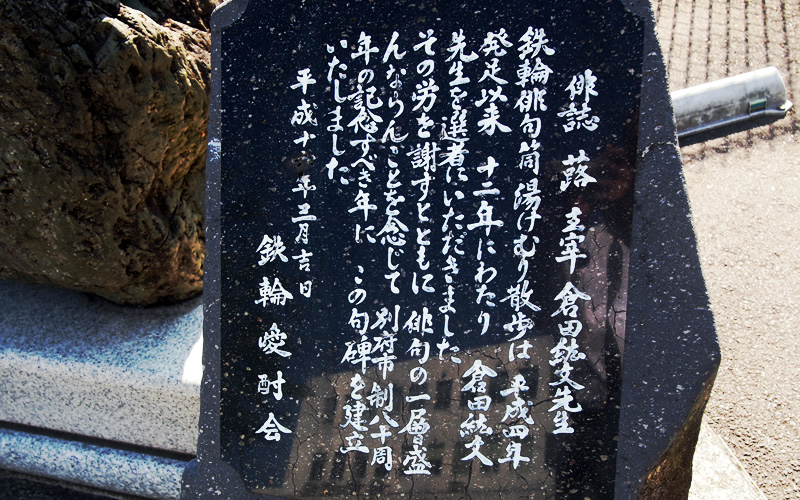 俳誌 蕗 主宰 倉田紘文先生
鉄輪俳句筒湯けむり散歩は 平成四年
発足以来 十二年にわたり 倉田紘文
先生を選者にいただきました
その労を謝すとともに 俳句の一層盛
んならんことを念じて 別府市制八十周
年の記念すべき年に この句碑を建立
いたしました
平成十六年三月吉日
鉄輪愛酎会